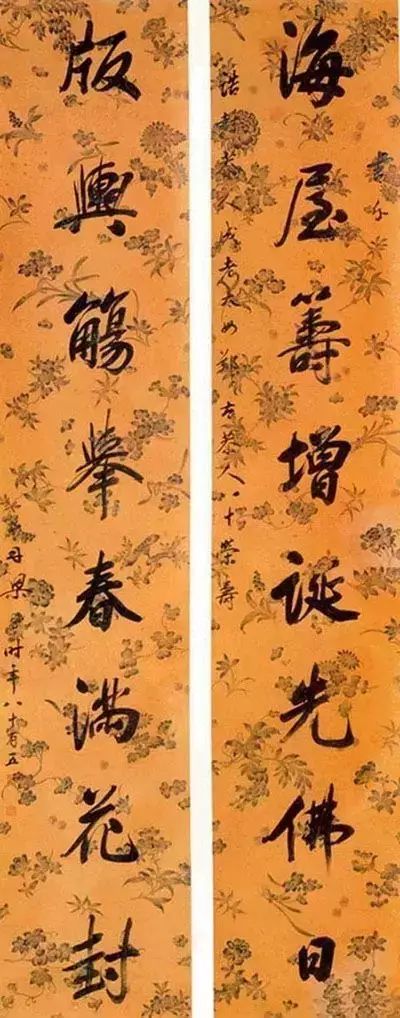 海屋籌增誕先佛日
書介
恭人八十榮壽
版輿觴舉春滿花封
時年八十有五